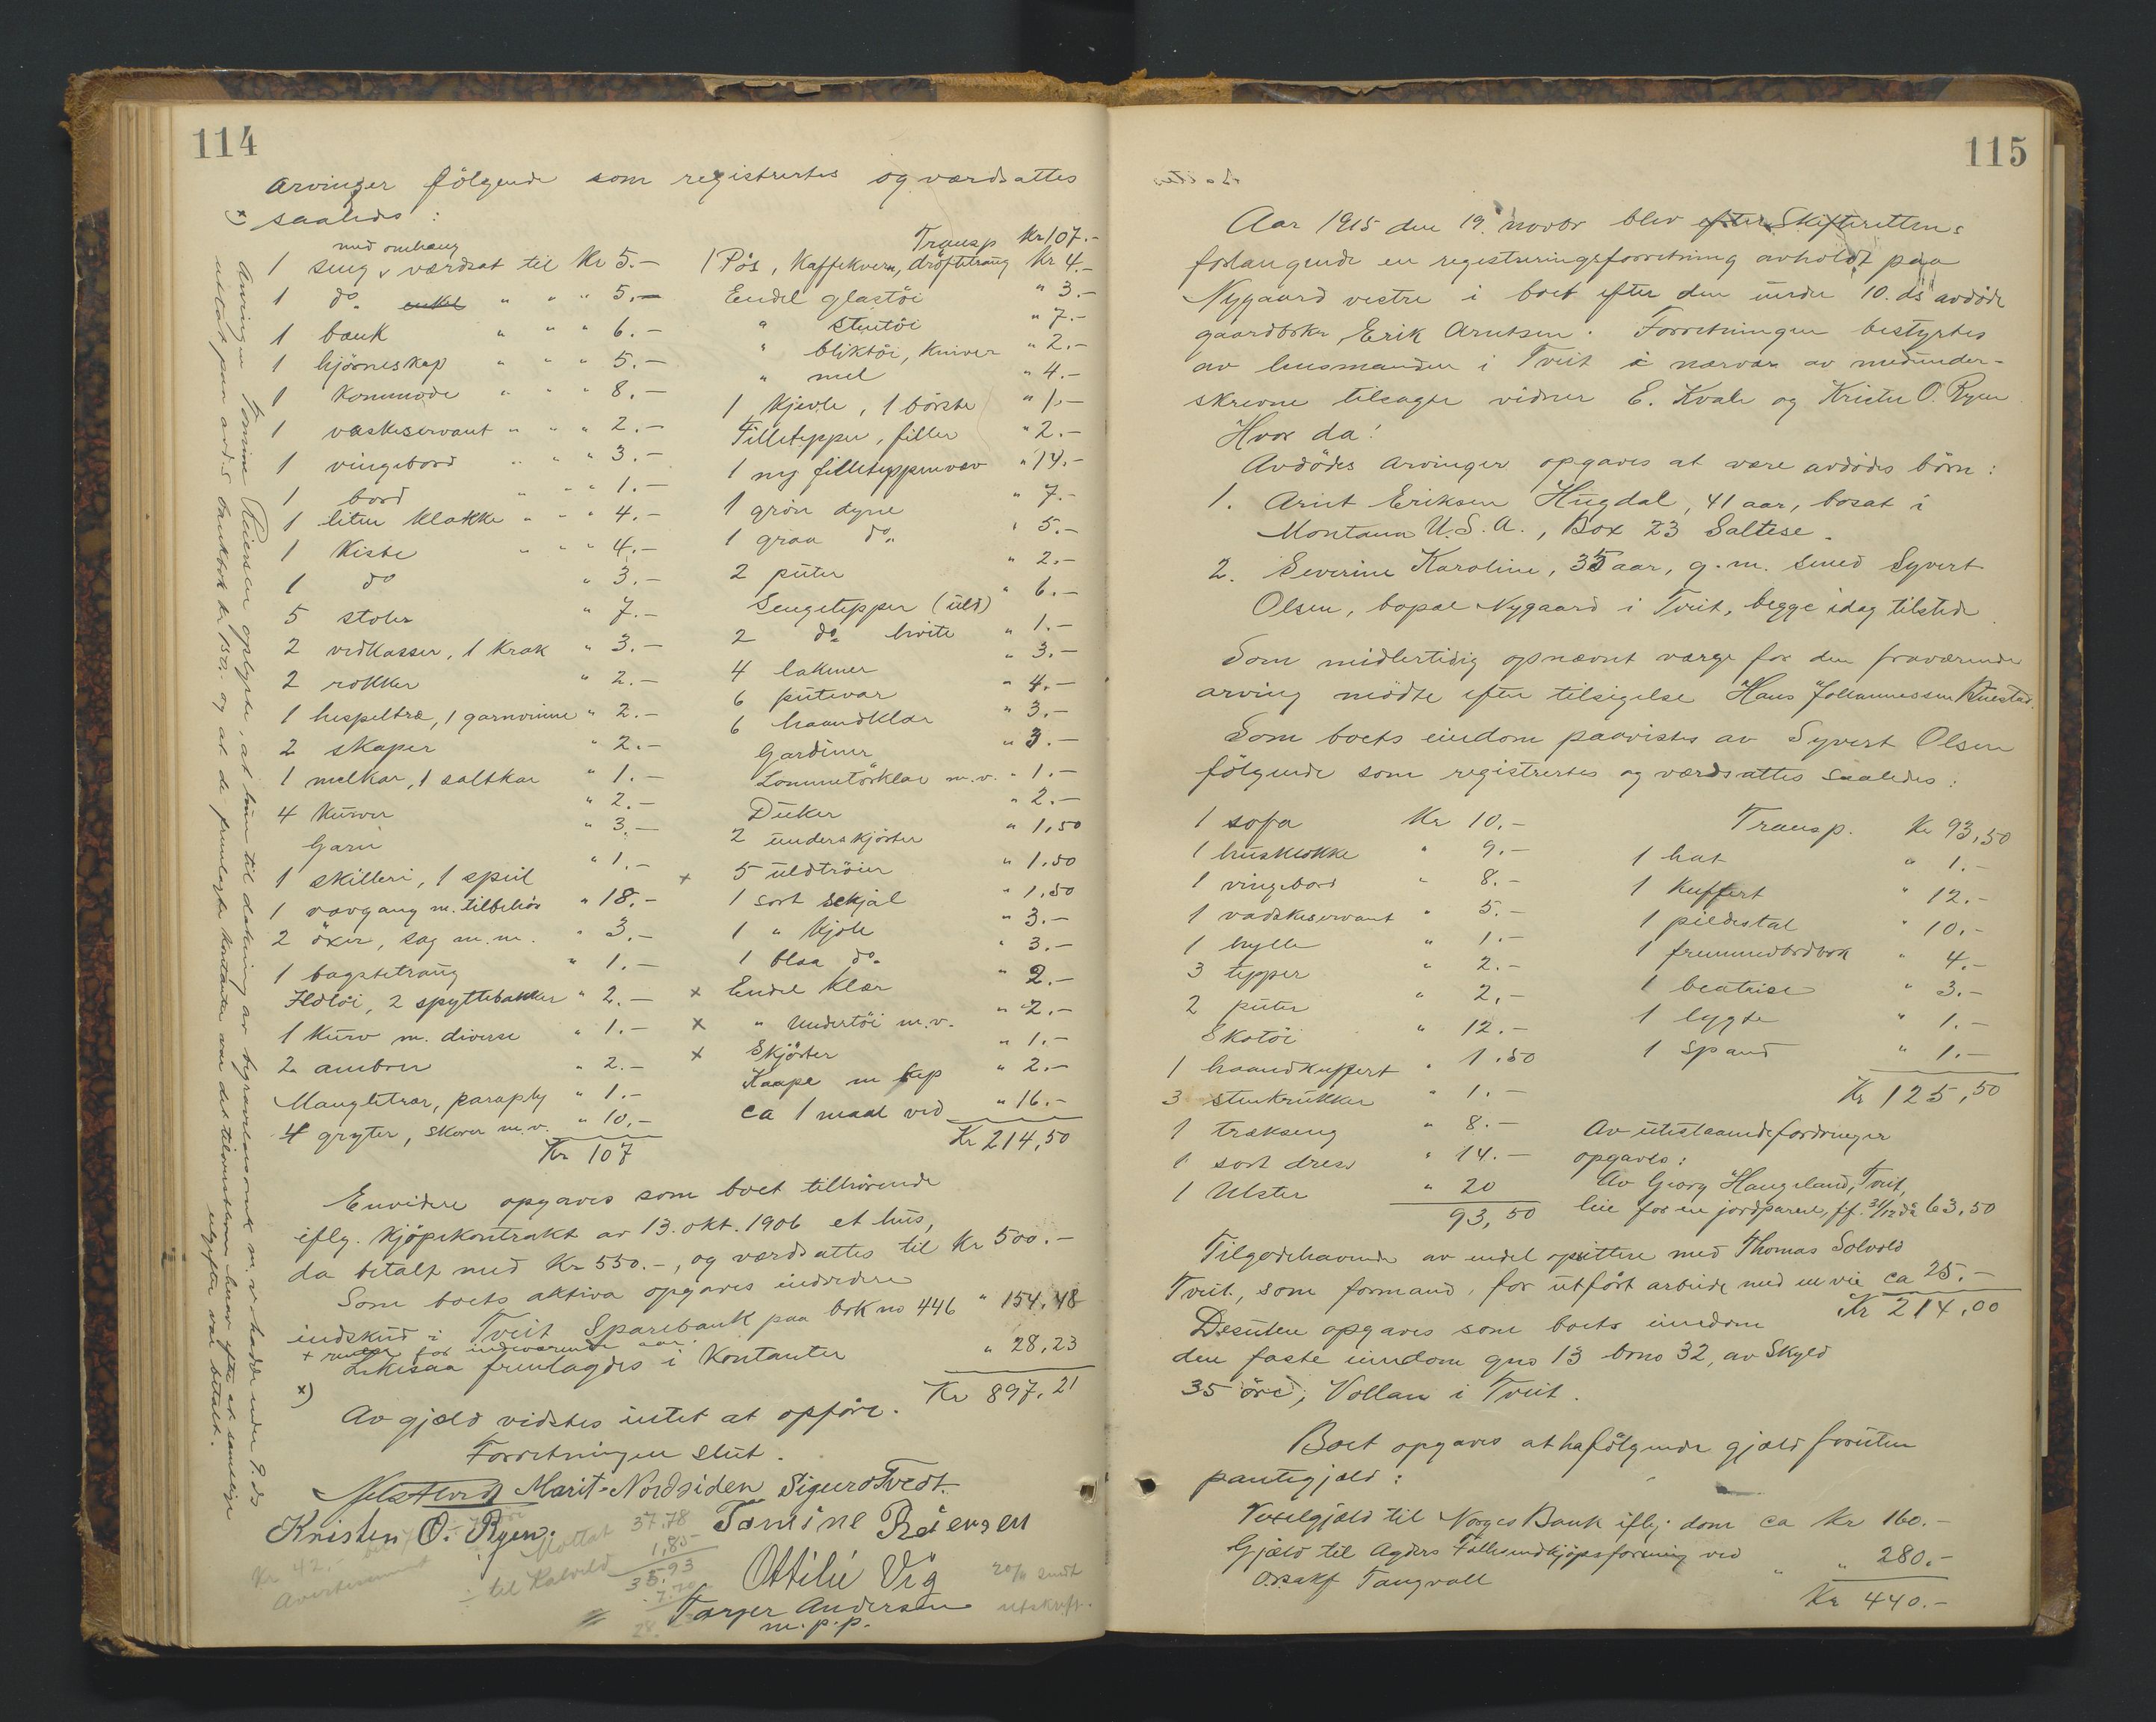 114
arvinger følgende som registrertes og værdsattes
x) saaledes:
med omhæng
1 seng v værdsat til Kr 5.-
1 do enkel " " " 5.-
1 bænk " " " 6.-
1 hjørneskap " " " 5.-
1 Kommode " " " 8.-
1 vaskeservant " " " 2.-
1 vingebord " " " 3.-
1 bord " " " 1.-
1 liten klokke " " " 4.-
1 Kiste " " " 4.-
1 do " 3.-
5 stoler " 7.-
2 vedkasser, 1 Krak " 3.-
2 rokker " 2.-
1 hespeltræ, 1 garnvinne " 2.-
2 skaper " 2.-
1 melkar, 1 saltkar " 1.-
4 Kurver " 2.-
Garn " 3.-
1 skilleri, 1 speil " 1.-
1 vævgang m. tilbehør " 18.-
2 øxer, sag m.m. " 3.-
1 bagstetraug " 1.-
Ildtøi, 2 spyttebakker " 2.-
1 Kurv m. diverse " 1.-
2 ambrer " 2.-
Mangletrær, paraply " 1.-
4 gryter, skorer m.v. " 10.-
Kr 107
Transp Kr 107.-
1 Pøs, Kaffekvern, drøftetraug Kr 4.-
Endel glastøi " 3.-
" stentøi " 7.-
" bliktøi, Kniver " 2.-
" mel " 4.-
1 Kjevle, 1 børste " 1.-
Filletepper, filler " 2.-
1 ny filleteppevæv " 14.-
1 grøn dyne " 7.-
1 graa do. " 5.-
2 puter " 2.-
Sengetepper (uld) " 6.-
2 do. hvite " 1.-
4 lakener " 3.-
6 putevar " 4.-
6 haandklær " 3.-
Gardiner " 3.-
Lommetørklær m.v. " 1.-
Duker " 2.-
2 underskjørter " 1,50
x 5 uldtrøier " 1,50
1 sort sckjal " 1,50
1 " Kjole " 3.-
1 blaa do. " 3.-
x Endel Klær " 2.-
x " Undertøi m.v. " 2.-
x Skjørter " 1.-
Kaape m kep " 2.-
ca 1 maal ved " 16.-
Kr 214,50
Envidere opgaves som boet tilhørende
iflg. Kjøpekontrakt av 13. okt. 1906 et hus,
da betalt med Kr 550.-, og værdsattes til Kr 500.-
Som boets aktiva opgaves endvidere
indskud i Tveit Sparebank paa bok no 446 " 154,48
+ renter for indeværende aar.
Likesaa fremlagdes i Kontanter " 28,23
x) Kr 897,21
Av gjæld vidstes intet at opføre.
Forretningen slut.
Marit Nordsiden Sigurd Tvedt.
Kristen O. Ryen. Tomine Reiersen
Ottilie Vig
Tarjer Andersen
m.p.p.
Kr 42.-
Avertisement
Mottat 37,78
1,85
÷ til Kalvild 35,93
7,70
20/11 sendt
utskrift.
x) Arvingen Tomine Reiersen oplyste, at hun til dækning av begravelsesomk m.v. hadde under 9. ds
uttat paa avd.s bankbok kr 150.- og at de fremlagte kontanter var det tiloversblevne herav efter at samtlige
utgifter var betalt.
115
Aar 1915 den 19. novbr blev efter Skifterettens
forlangende en registreringsforretning avholdt paa
Nygaard vestre i boet efter den under 10. ds avdøde
gaardbrker Erik Arntsen. Forretningen bestyrtes
av lensmanden i Tveit i nærvær av medunder-
skrevne tilsagte vidner E. Kvale og Kristen O. Ryen.
Hvor da!
Avdødes arvinger opgaves at være avdødes børn:
1. Arnt Eriksen Hugdal, 41 aar, bosat i
Montana U.S.A., Box 23 Saltese.
2. Severine Karoline, 35 aar, g.m. smed Syvert
Olsen, bopæl Nygaard i Tveit, begge idag tilstede.
Som midlertidig opnævnt værge for den fraværende
arving mødte efter tilsigelse Hans Johannessen
Som boets eiendom paavistes av Syvert Olsen
følgende som registrertes og værdsattes saaledes:
1 sofa Kr 10.-
1 husklokke " 9.-
1 vingebord " 8.-
1 vadskeservant " 5.-
1 hylle " 1.-
3 tepper " 2.-
2 puter " 2.-
Skotøi " 12.-
1 haandkuffert " 1,50
3 stenkrukker " 1.-
1 trækseng " 8.-
1 sort dress " 14.-
1 Ulster " 20
93,50
Transp. Kr 93,50
1 hat " 1.-
1 Kuffert " 12.-
1 pildestal " 10.-
1 fremmedordbok " 4.-
1 beatrise " 3.-
1 lygte " 1.-
1 Spand " 1.-
Kr 125,50
Av utestaaendefordringer
opgaves:
Av Georg Haugeland, Tveit,
leie for en jordparsel, pf. 31/12 då 63,50
Tilgodehavende av endel opsittere med Thomas Solvold
Tveit, som formand, for utført arbeide med en vei ca 25.-
Kr 214,00
Desuten opgaves som boets eiendom
den faste eiendom gno 13 brno 32, av Skyld
35 øre, Vollan i Tveit.
Boet opgaves at ha følgende gjæld foruten
pantegjæld:
Vexelgjæld til Norges Bank iflg. dom ca Kr 160.-
Gjæld til Agders Fællesindkjøpsforening ved
o.r.sakf Tangvall " " 280.-
Kr 440.-